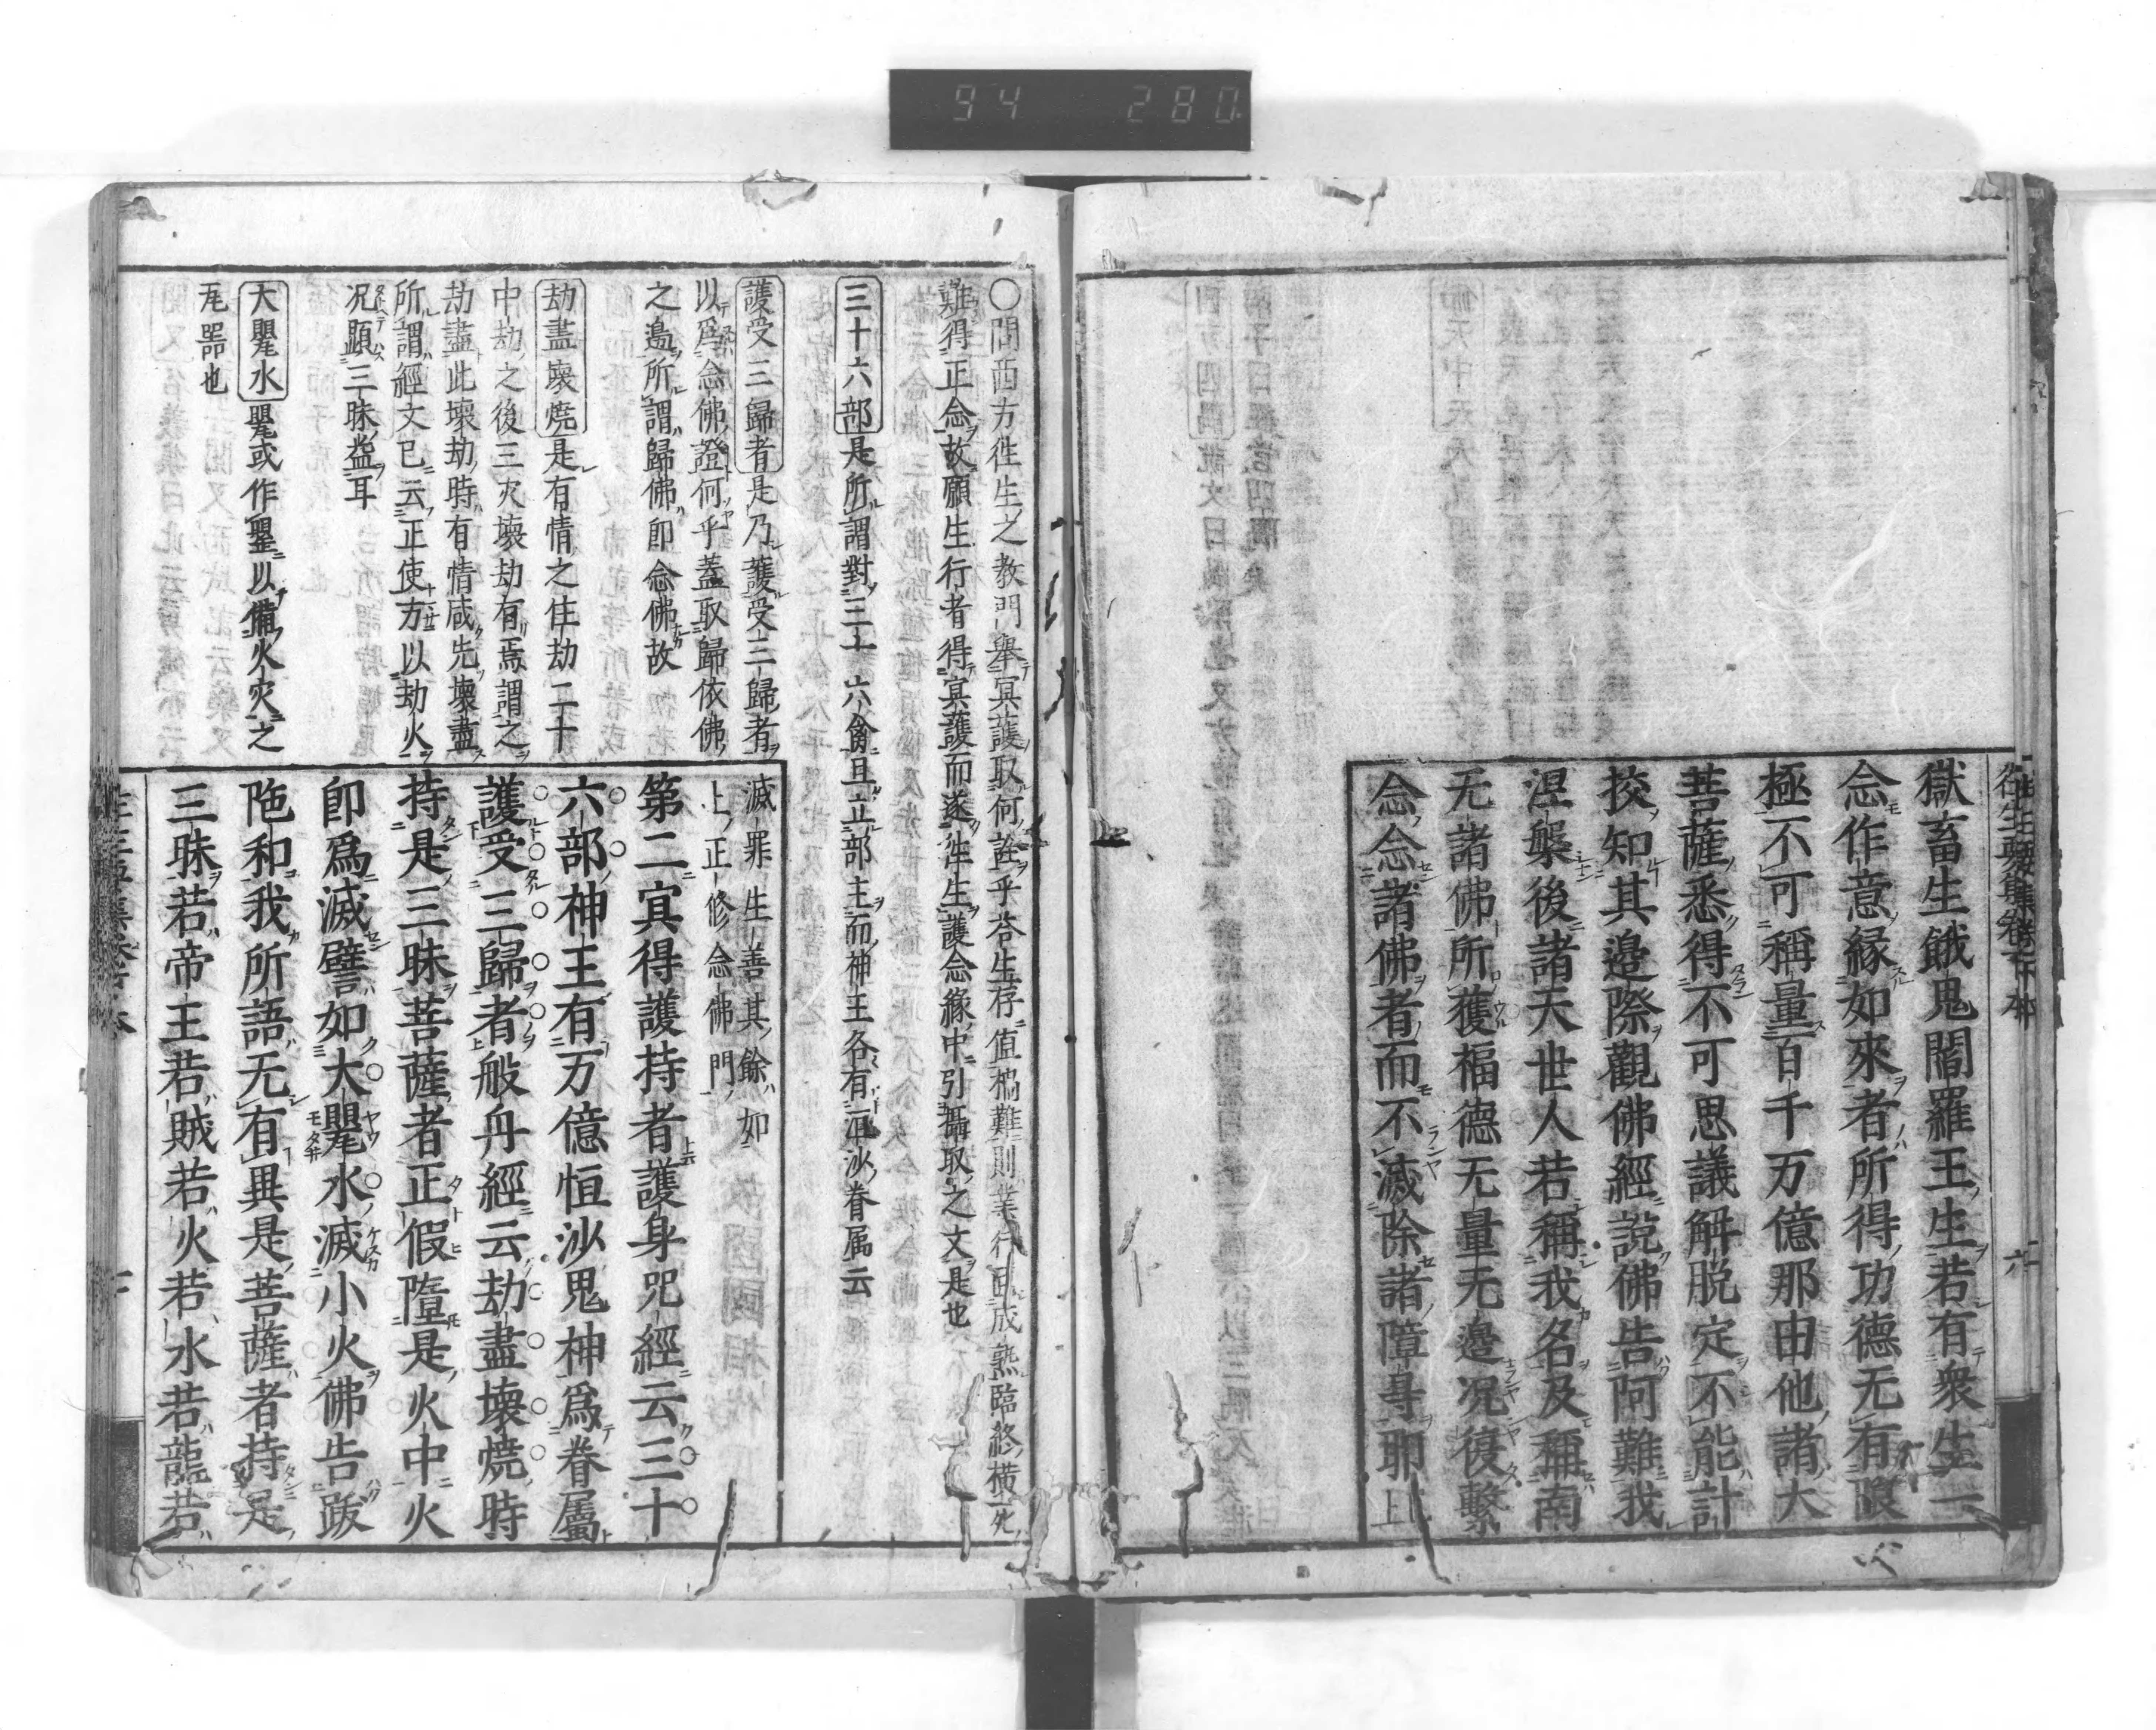 94 280
獄畜生餓鬼閻羅王生若有衆生一
念作意縁如來者所得功德无有限
極不可稱量百千万億那由他諸大
菩薩悉得不可思議解脱定不能計
挍知其邊際觀佛經説佛告阿難我
涅槃後諸天世人若稱我名及稱南
无諸佛所獲福德无量无邊况復繫
念念諸佛者而不滅除諸障㝵耶上
〇問西方徃生之教門舉冥護取何詮乎荅生存値禍難則業行囬成熟臨終横死
難得正念故願生行者得冥護而遂徃生護念縁中引攝取之文是也
三十六部是所謂對三十六禽且立部主而神王各有恒沙眷属云
護受三歸者是乃護受三歸者
以爲念佛證何乎蓋取歸依佛
之邉所謂歸佛即念佛故
劫盡壞焼是有情之住劫二十
中劫之後三灾壞劫有焉謂之
劫盡此壞劫時有情咸先壞盡
所謂經文已云正使方以劫火
况顕三昧益耳
大⿱瞿水⿱或作⿱以備火灾之
瓦噐也
滅罪生善其餘如
上正修念佛門
第二冥得護持者護身咒經云三十
六部神王有万億恒沙鬼神爲眷屬
護受三歸者般舟經云劫盡壞焼時
持是三昧菩薩者正假墮是火中火
即爲滅譬如大罌水滅小火佛告跋
陁和我所語无有異是菩薩者持是
三昧若帝王若賊若火若水若龍若